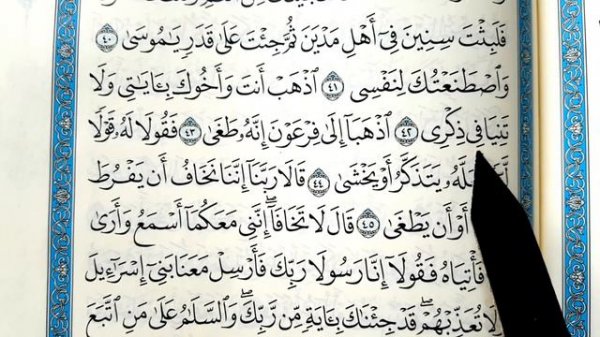 فَلَبِثْتَ سِنِينَ فِىٓ أَهْلِ مَدْيَنَ ثُمَّ جِئْتَ عَلَىٰ قَدَرٍ يَٰمُوسَىٰ ٤٠
وَٱصْطَنَعْتُكَ لِنَفْسِى ٤١ ٱذْهَبْ أَنتَ وَأَخُوكَ بِـَٔايَٰتِى وَلَا
تَنِيَا فِى ذِكْرِى ٤٢ ٱذْهَبَآ إِلَىٰ فِرْعَوْنَ إِنَّهُۥ طَغَىٰ ٤٣ فَقُولَا لَهُۥ قَوْلًا
يَتَذَكَّرُ أَوْ يَخْشَىٰ ٤٤ قَالَا رَبَّنَآ إِنَّنَا نَخَافُ أَن يَفْرُطَ
أَوْ أَن يَطْغَىٰ ٤٥ قَالَ لَا تَخَافَآ إِنَّنِى مَعَكُمَآ أَسْمَعُ وَأَرَىٰ
فَأْتِيَاهُ فَقُولَآ إِنَّا رَسُولَا رَبِّكَ فَأَرْسِلْ مَعَنَا بَنِىٓ إِسْرَٰٓءِيلَ
وَلَا تُعَذِّبْهُمْ قَدْ جِئْنَٰكَ بِـَٔايَةٍ مِّن رَّبِّكَ وَٱلسَّلَٰمُ عَلَىٰ مَنِ ٱتَّبَعَ